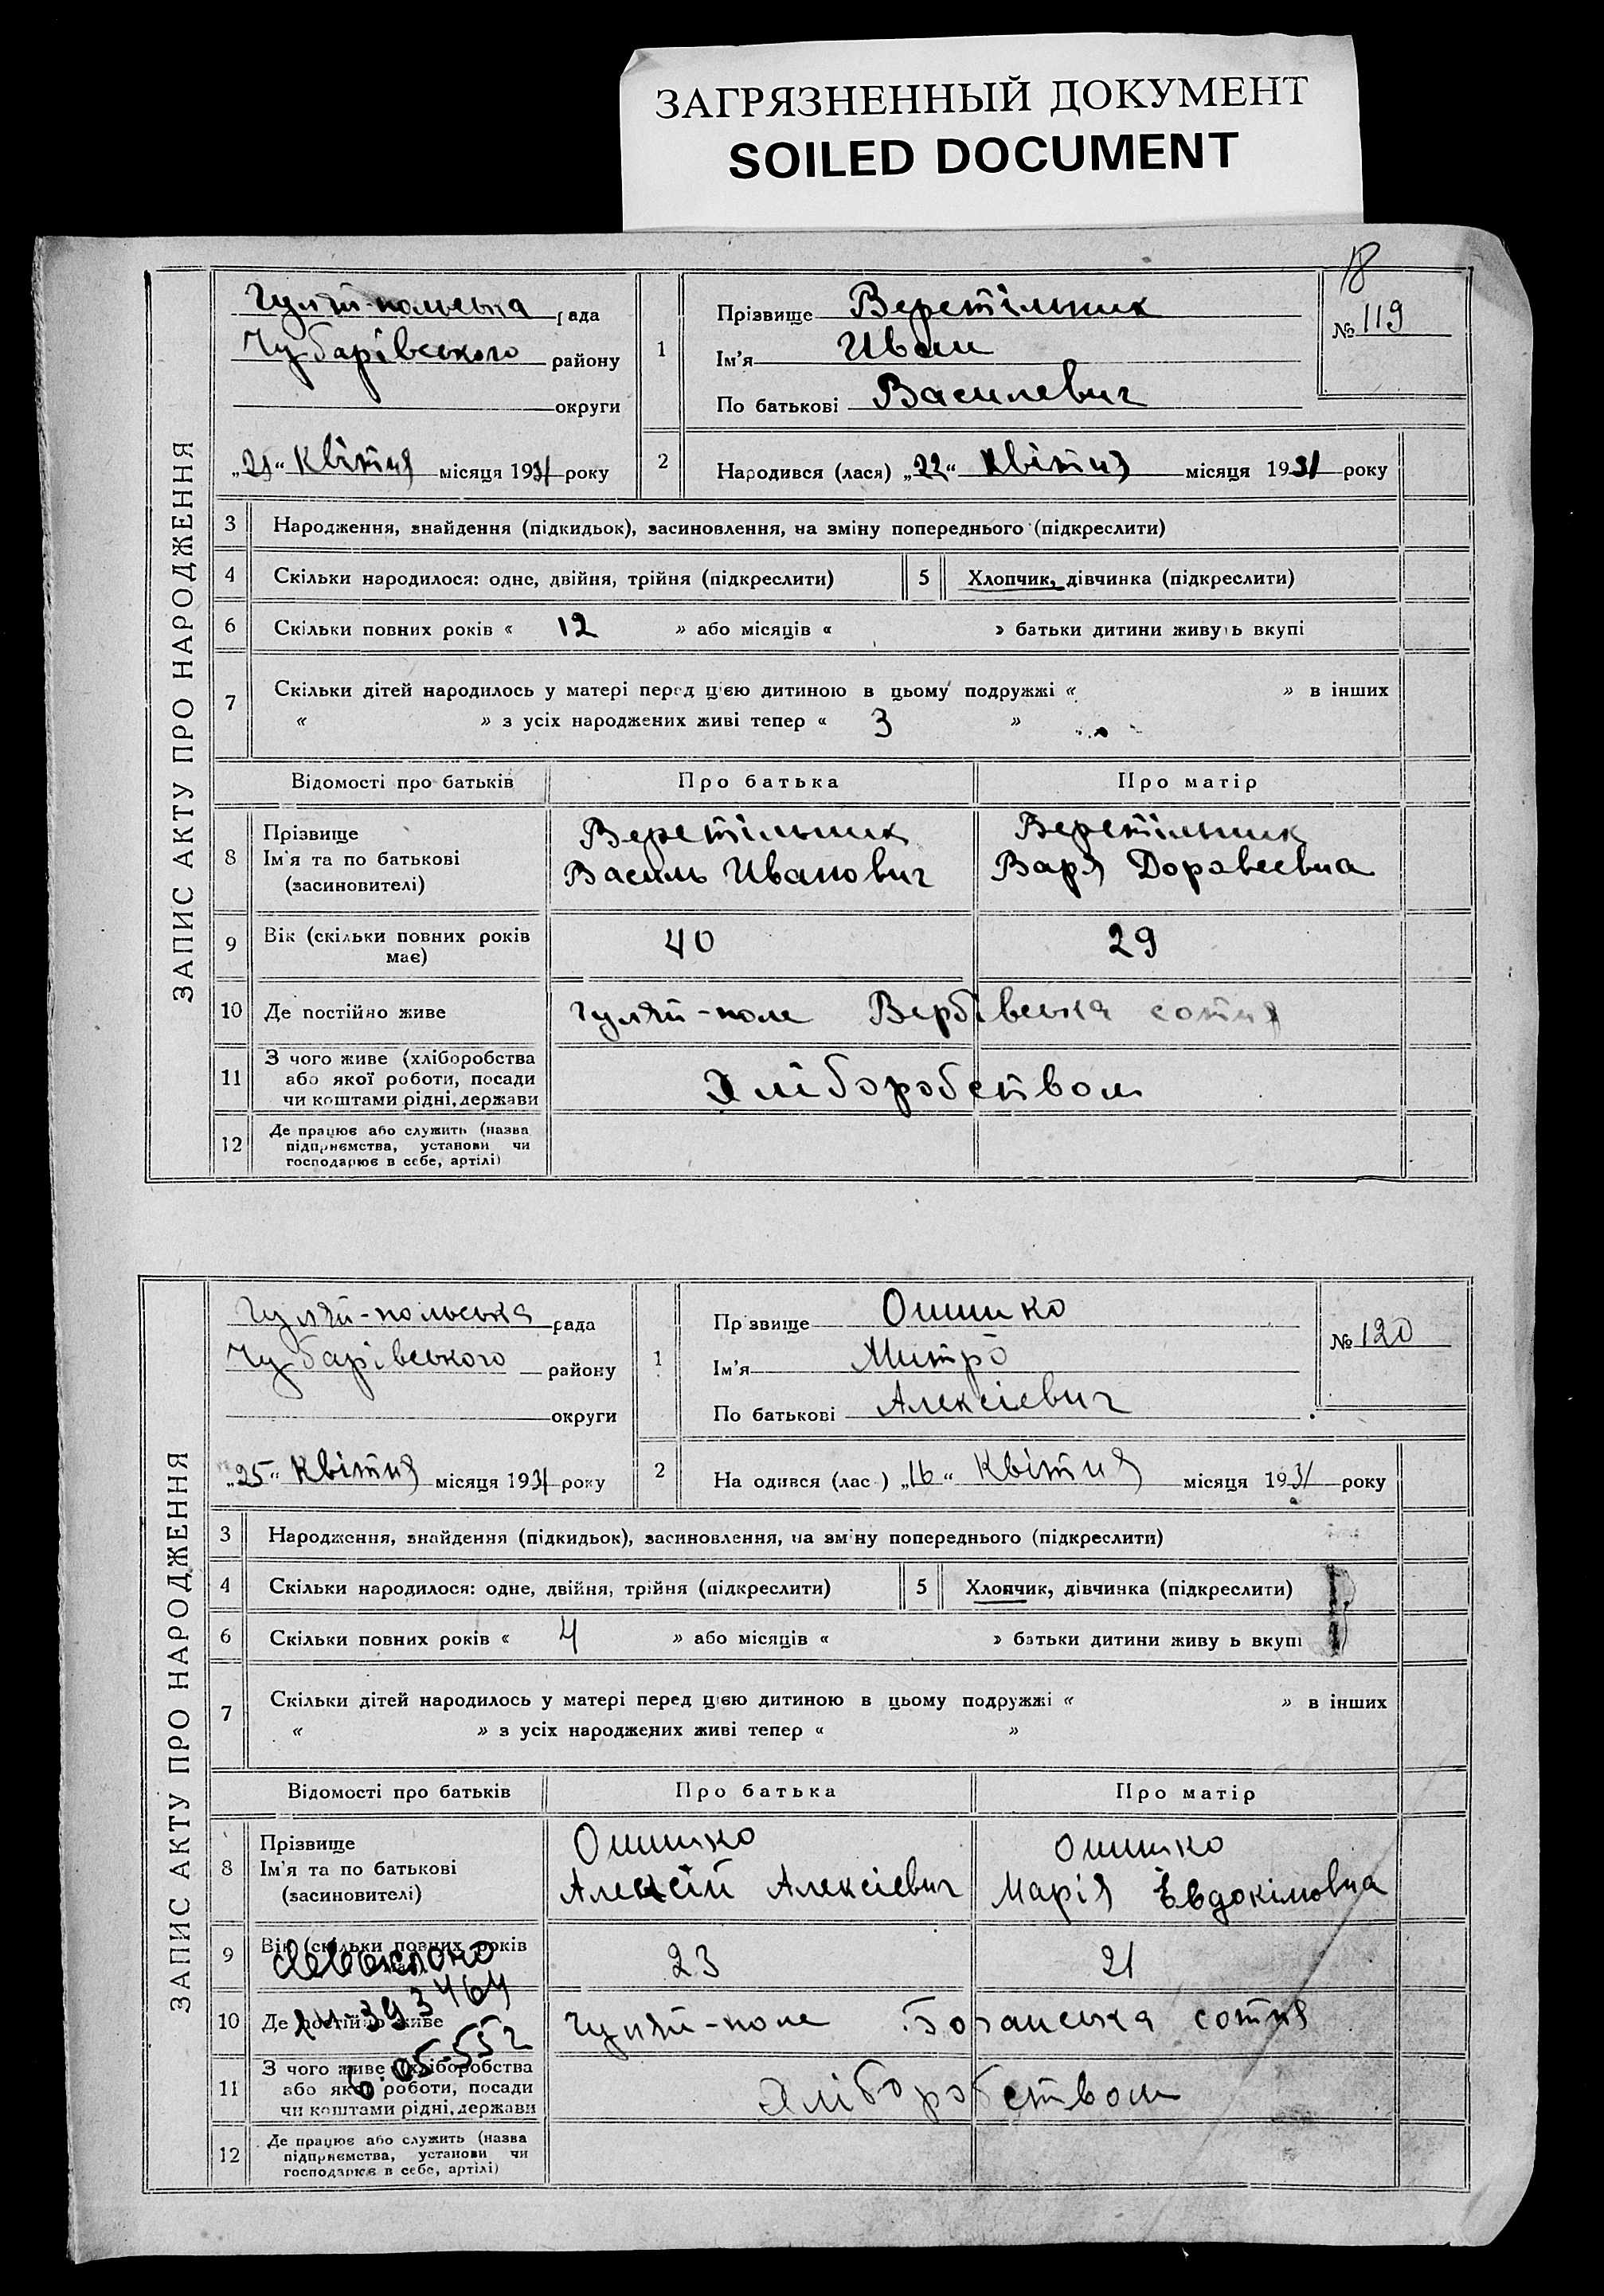 ЗАГРЯЗНЕННЫЙ ДОКУМЕНТ
SOILED DOCUMENT
18
ЗАПИС АКТУ ПРО НАРОДЖЕННЯ
Гуляй-польська рада
Чубарівського району
округи
„21“ Квітня місяця 1931 року
1
Прізвище Веретільник
Ім'я Иван
По батькові Василевич
№ 119
2
Народився (лася) „22“ Квітня місяця 1931 року
3 Народження, знайдення (підкидьок), засиновлення, на зміну попереднього (підкреслити)
4 Скільки народилося: одне, двійня, трійня (підкреслити) 5 Хлопчик, дівчинка (підкреслити)
6 Скільки повних років « 12 » або місяців « » батьки дитини живуть вкупі
7 Скільки дітей народилось у матері перед цією дитиною в цьому подружжі « » в інших
« » з усіх народжених живі тепер « 3 »
Відомості про батьків Про батька Про матір
8 Прізвище
Ім'я та по батькові
(засиновителі)
Веретільник
Василь Иванович
Веретільник
Варя Доравеевна
9 Вік (скільки повних років
має)
40 29
10 Де постійно живе Гуляй-поле Вербівська сотня
11 З чого живе (хліборобства
або якої роботи, посади
чи коштами рідні, держави
Хліборобством
12 Де працює або служить (назва
підприємства, установи чи
господарює в себе, артілі)
ЗАПИС АКТУ ПРО НАРОДЖЕННЯ
Гуляй-польська рада
Чубарівського району
округи
„25“ Квітня місяця 1931 року
1
Прізвище Ошико
Ім'я Митро
По батькові Алексіевич
№ 120
2
На одився (лас ) „16“ Квітня місяця 1931 року
3 Народження, знайдення (підкидьок), засиновлення, на зміну попереднього (підкреслити)
4 Скільки народилося: одне, двійня, трійня (підкреслити) 5 Хлопчик, дівчинка (підкреслити)
6 Скільки повних років « 4 » або місяців « » батьки дитини живу ь вкупі
7 Скільки дітей народилось у матері перед цією дитиною в цьому подружжі « » в інших
« » з усіх народжених живі тепер « »
Відомості про батьків Про батька Про матір
8 Прізвище
Ім'я та по батькові
(засиновителі)
Ошико
Алексій Алексіевич
Ошико
Марія Евдокімовна
9 Вік (скільки повних років
23 21
10 Де постійно живе Гуляй-поле сотня
11 З чого живе (хліборобства
або якої роботи, посади
чи коштами рідні, держави
Хліборобством
12 Де працює або служить (назва
підприємства, установи чи
господарює в себе, артілі)